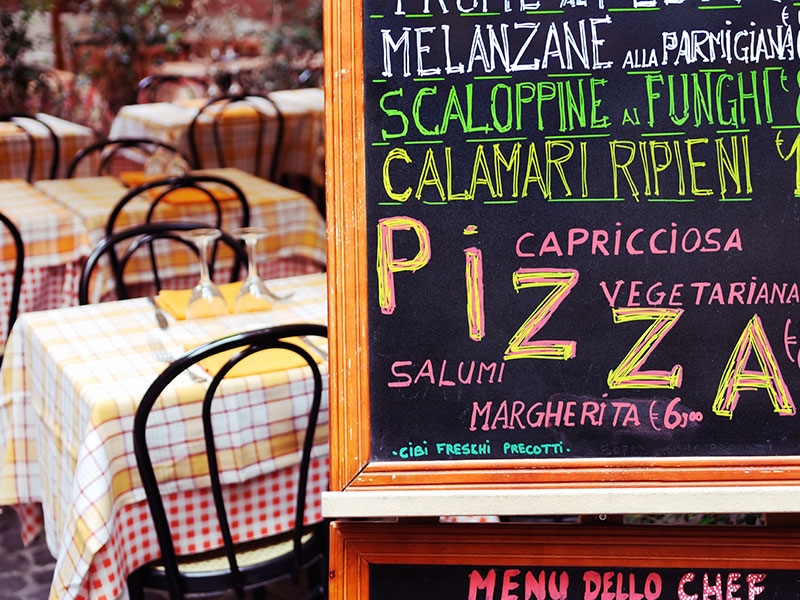 MELANZANE ALLA PARMIGIANA
SCALOPPINE AI FUNGHI
CALAMARI RIPIENI
PiZZA
CAPRICCIOSA
VEGETARIANA
SALUMI
MARGHERITA €6,00
·CIBI FRESCHI PRECOTTI·
MENU DELLO CHEF